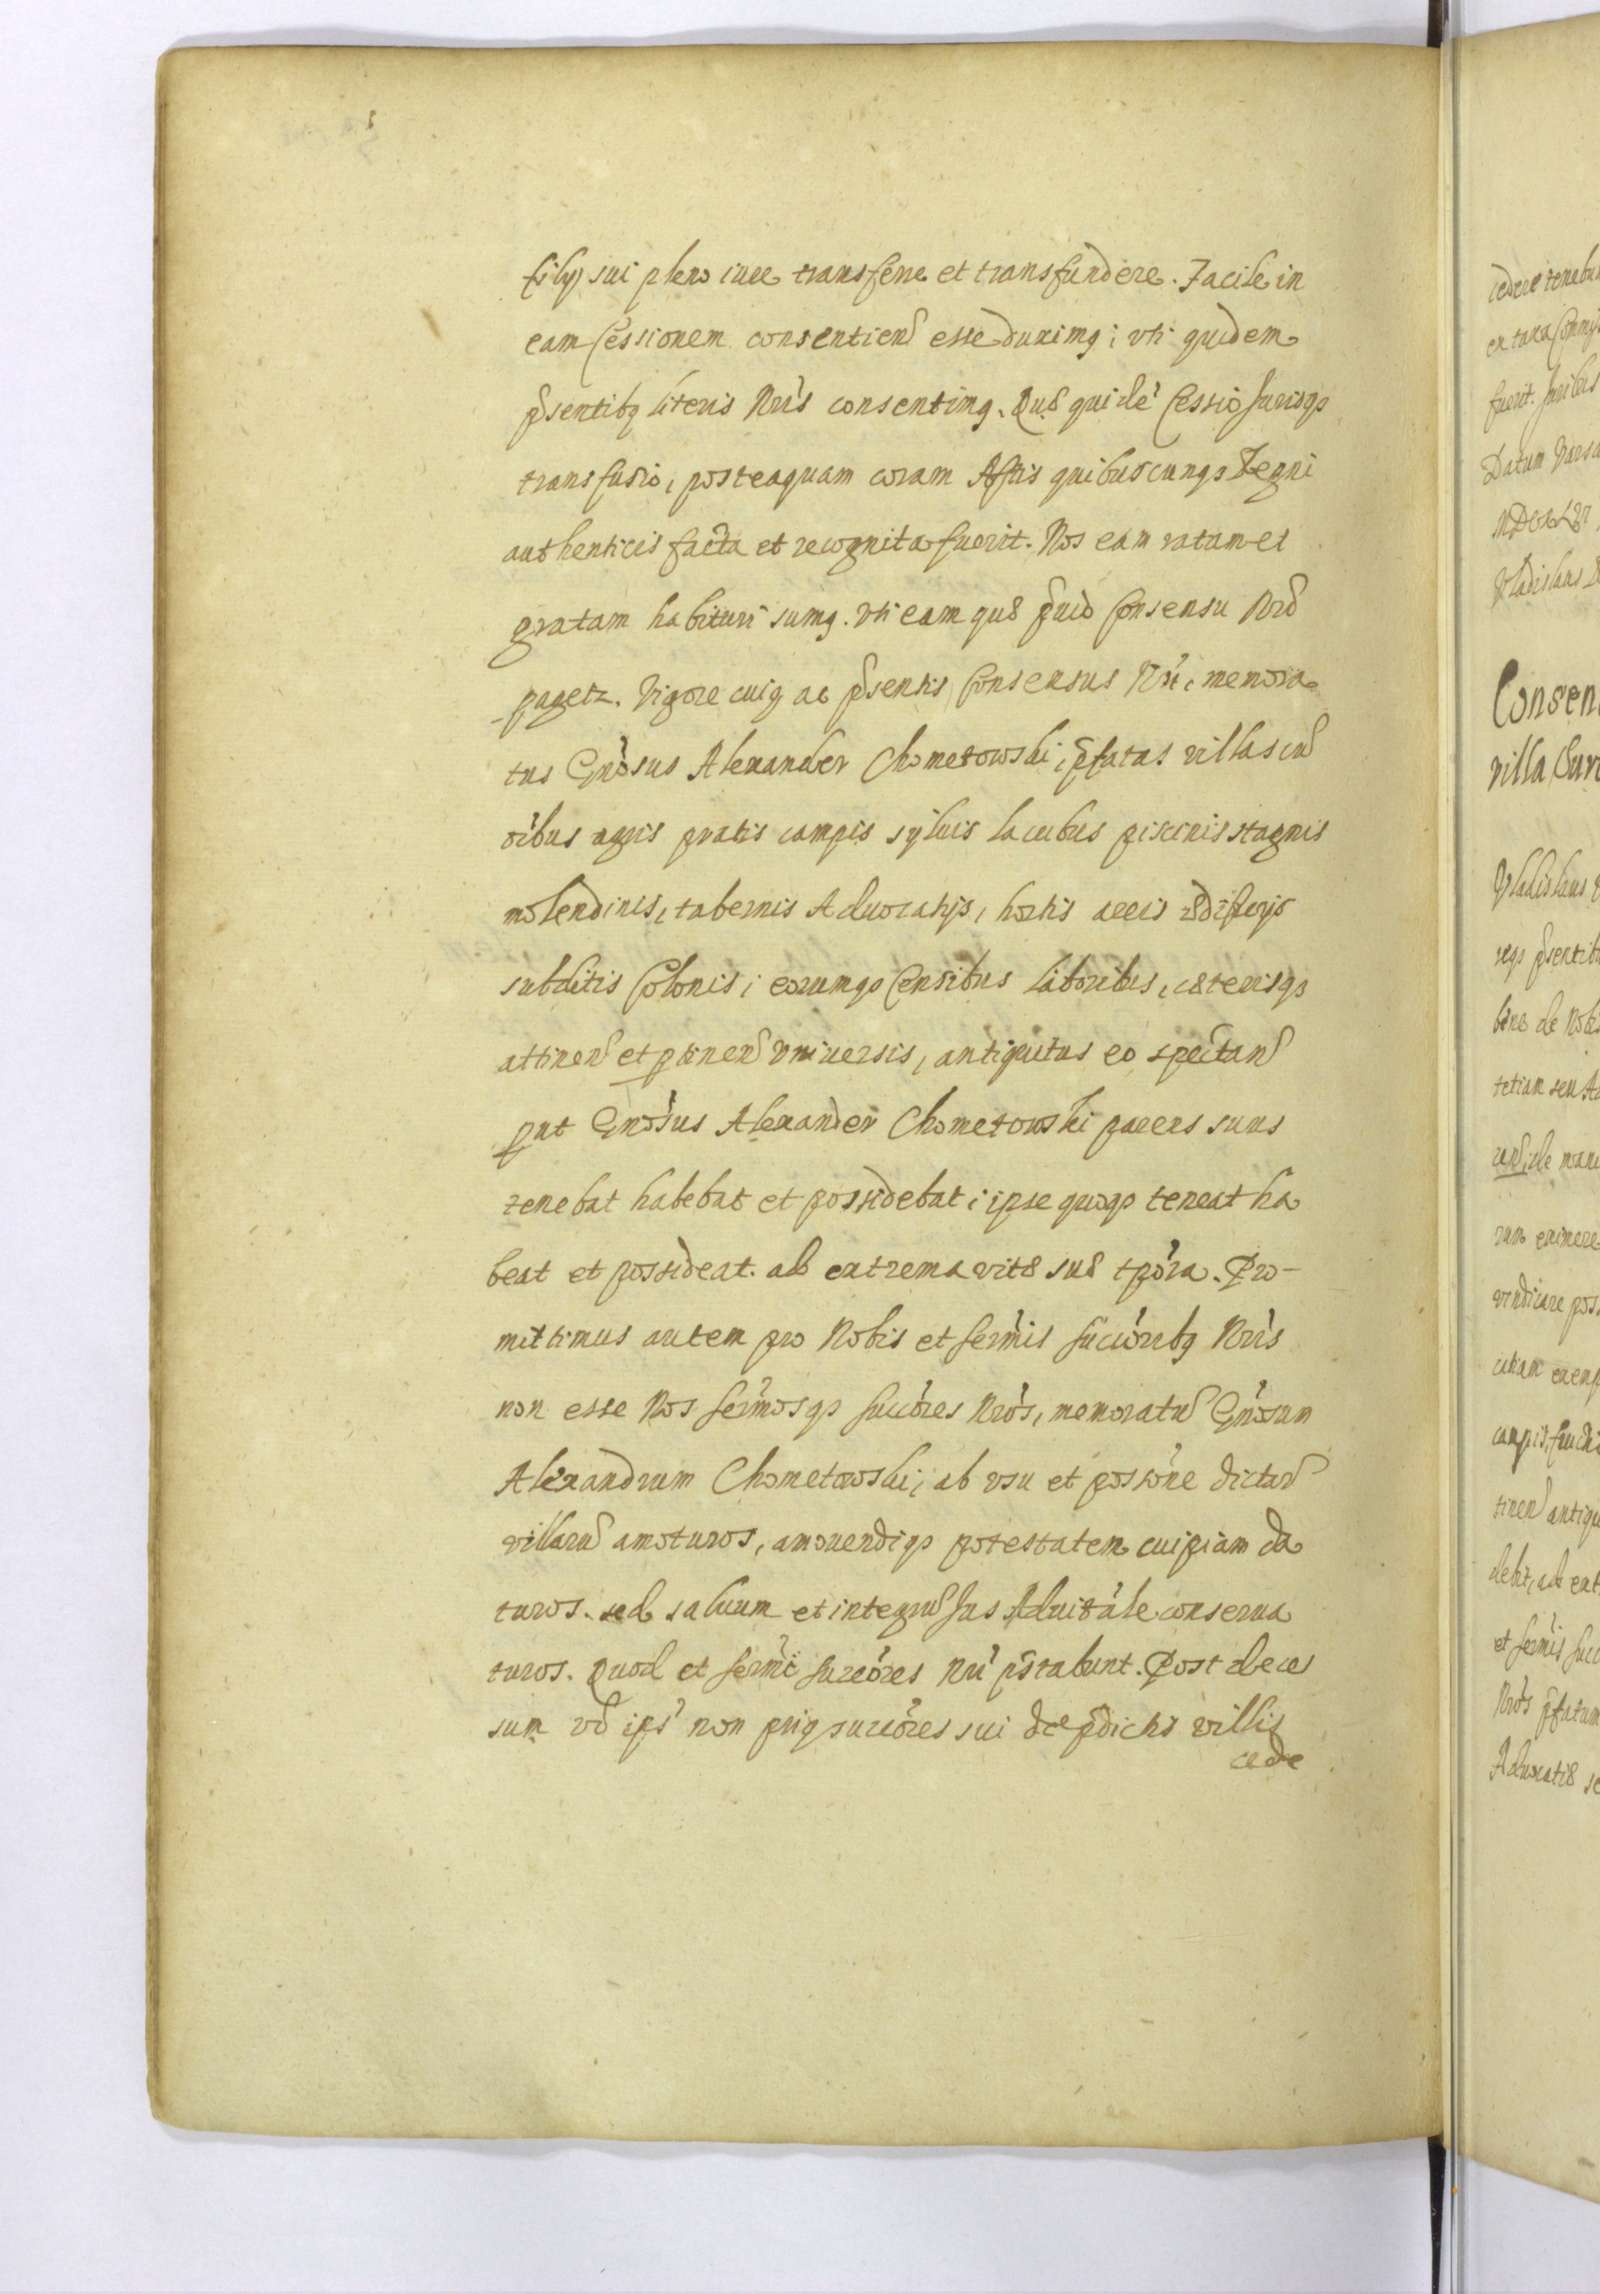 filÿ sui pleno iure transferre et transfundere. Facile in
eam Cessionem consentiend esse duximq; vti quidem
p̃sentibq literis Nrĩs consentimq. Quæ quidẽ Cessio Jurisqꝫ
transfusio, posteaquam coram Actis quibuscunqꝫ Regni
authenticis facta et recognita fuerit. Nos eam ratam et
gratam habituri sumq. vti eam quæ p̃uio Consensu Nrõ
pagetr. Vigore cuiq ac p̃sentis Consensus Nrĩ, memora
tus Gnõsus Alexander Chometowski, p̃fatas villas cũ
oĩbus agris pratis campis syluis lacubus piscinis stagnis
molendinis, tabernis Aduocatijs, hortis areis ædificijs
subditis Colonis, eorumqꝫ Censibus laboribus, cæterisqꝫ
attinen̄ et ꝑtinen̄ vniuersis, antiquitus eo spectan̄
ꝓut Gnõsus Alexander Chometowski parens suus
tenebat habebat et possidebat, ipse quoqꝫ teneat ha
beat et possideat ad extrema vitæ suæ tp̃ora. Pro-
mittimus autem pro Nobis et Serm̃is Succõribq Nrĩs
non esse Nos Serm̃osqꝫ Succõres Nrõs, memoratũ Gnõsum
Alexandrum Chometowski, ab vsu et possiõne dictarũ
villarũ amoturos, amouendiqꝫ potestatem cuipiam da
turos. sed saluum et integrũ Jus Aduitãle conserua
turos. Quod et Serm̃i Succõres Nrĩ p̃stabunt. Post deces
sum vð ipsĩ non priq succõres sui de p̃dictis villis
cede

cedere tenebu
ex taxa Commis
fuerit. Juribus
Datum Varsa
Vladislaus
Consen
villa
Vladislaus
p̃sentib
de Nobis
tetiam seu
de
eximere
vendicare pos
exemp
campis,
tinen̄ antiqu
debit, ad ext
et Serm̃is Succ
Nrõs p̃fatum
Aduocatiæ